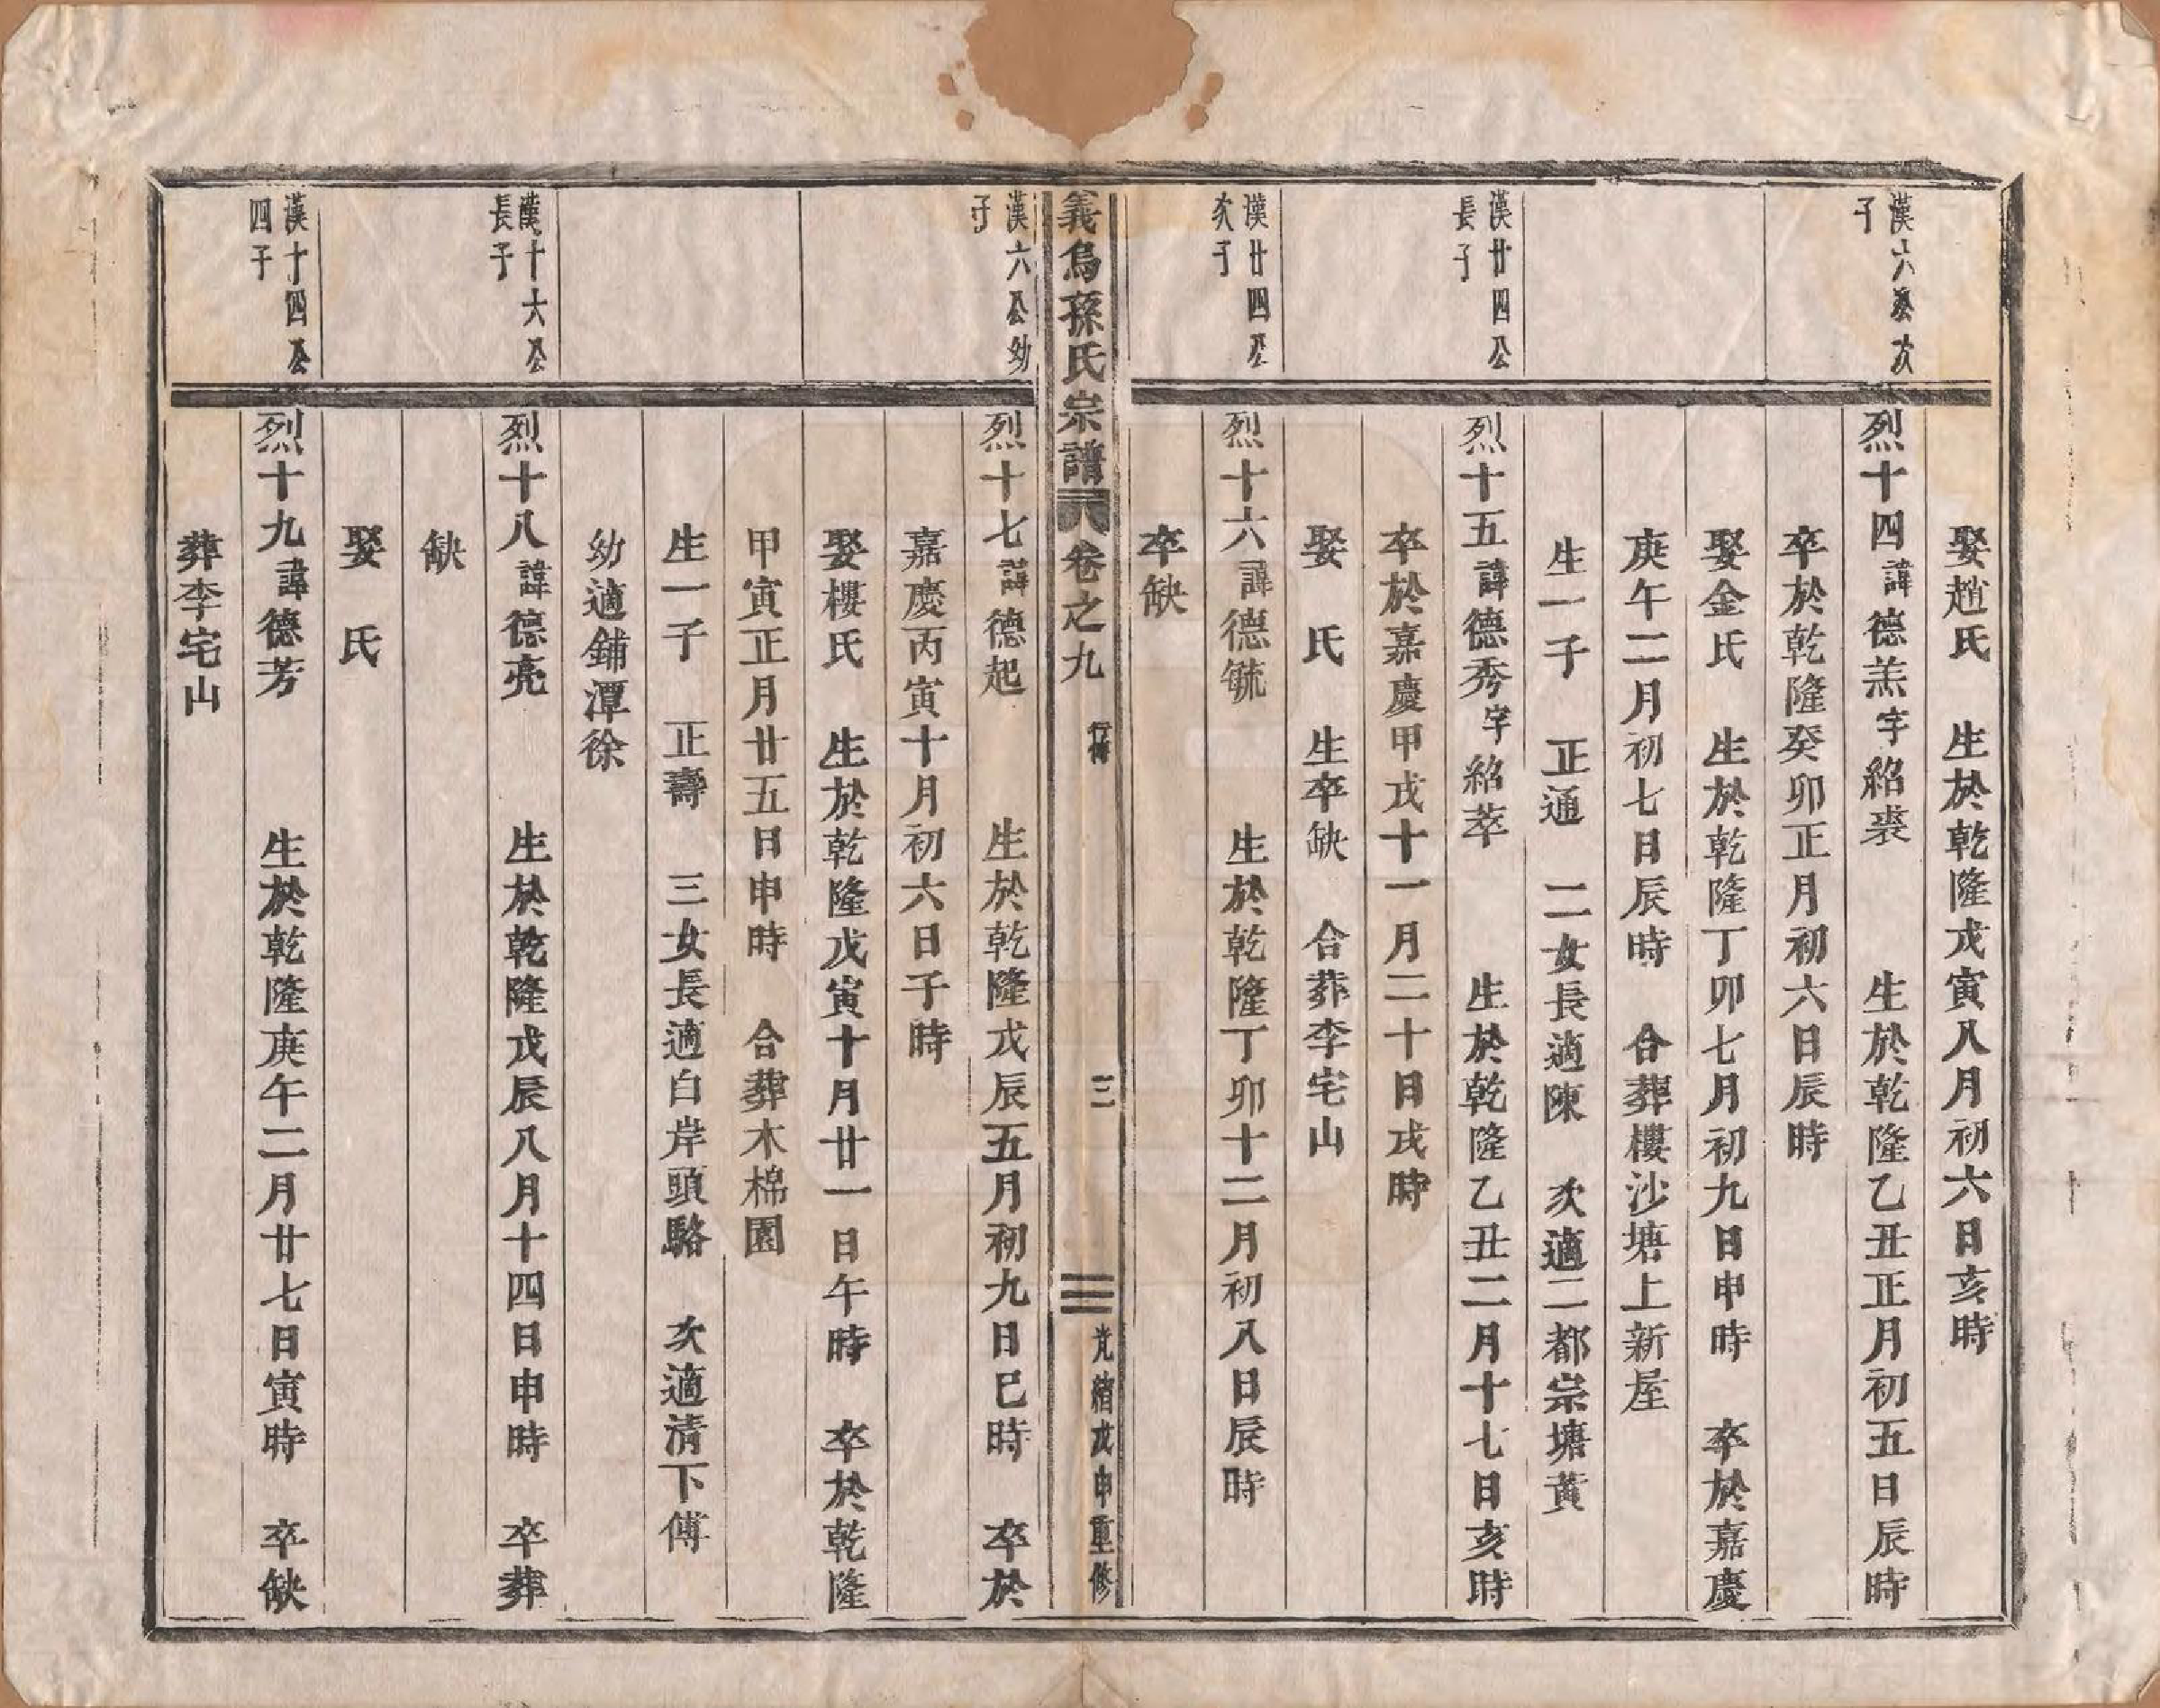 娶趙氏　生於乾隆戊寅八月初六日亥時
漢六公次
子
烈十四諱德羔字紹裘　生於乾隆乙丑正月初五日辰時
卒於乾隆癸卯正月初六日辰時
娶金氏　生於乾隆丁卯七月初九日申時　卒於嘉慶
庚午二月初七日辰時　合葬樓沙塘上新屋
生一子　正通　二女長適陳　次適二都宗塘黃
漢廿四公
長子
烈十五諱德秀字紹萃　生於乾隆乙丑二月十七日亥時
卒於嘉慶甲戌十一月二十日戌時
娶　氏　生卒缺　合葬李宅山
漢廿四公
次子
烈十六諱德毓　生於乾隆丁卯十二月初八日辰時
卒缺
義烏孫氏宗譜　卷之九　行傳　三　光緒戊申重修
漢六公幼
子
烈十七諱德起　生於乾隆戊辰五月初九日巳時　卒於
嘉慶丙寅十月初六日子時
娶樓氏　生於乾隆戊寅十月廿一日午時　卒於乾隆
甲寅正月廿五日申時　合葬木棉園
生一子　正壽　三女長適白岸頭駱　次適清下傅
幼適鋪潭徐
漢十六公
長子
烈十八諱德亮　生於乾隆戊辰八月十四日申時　卒葬
缺
娶　氏
漢十四公
四子
烈十九諱德芳　生於乾隆庚午二月廿七日寅時　卒缺
葬李宅山